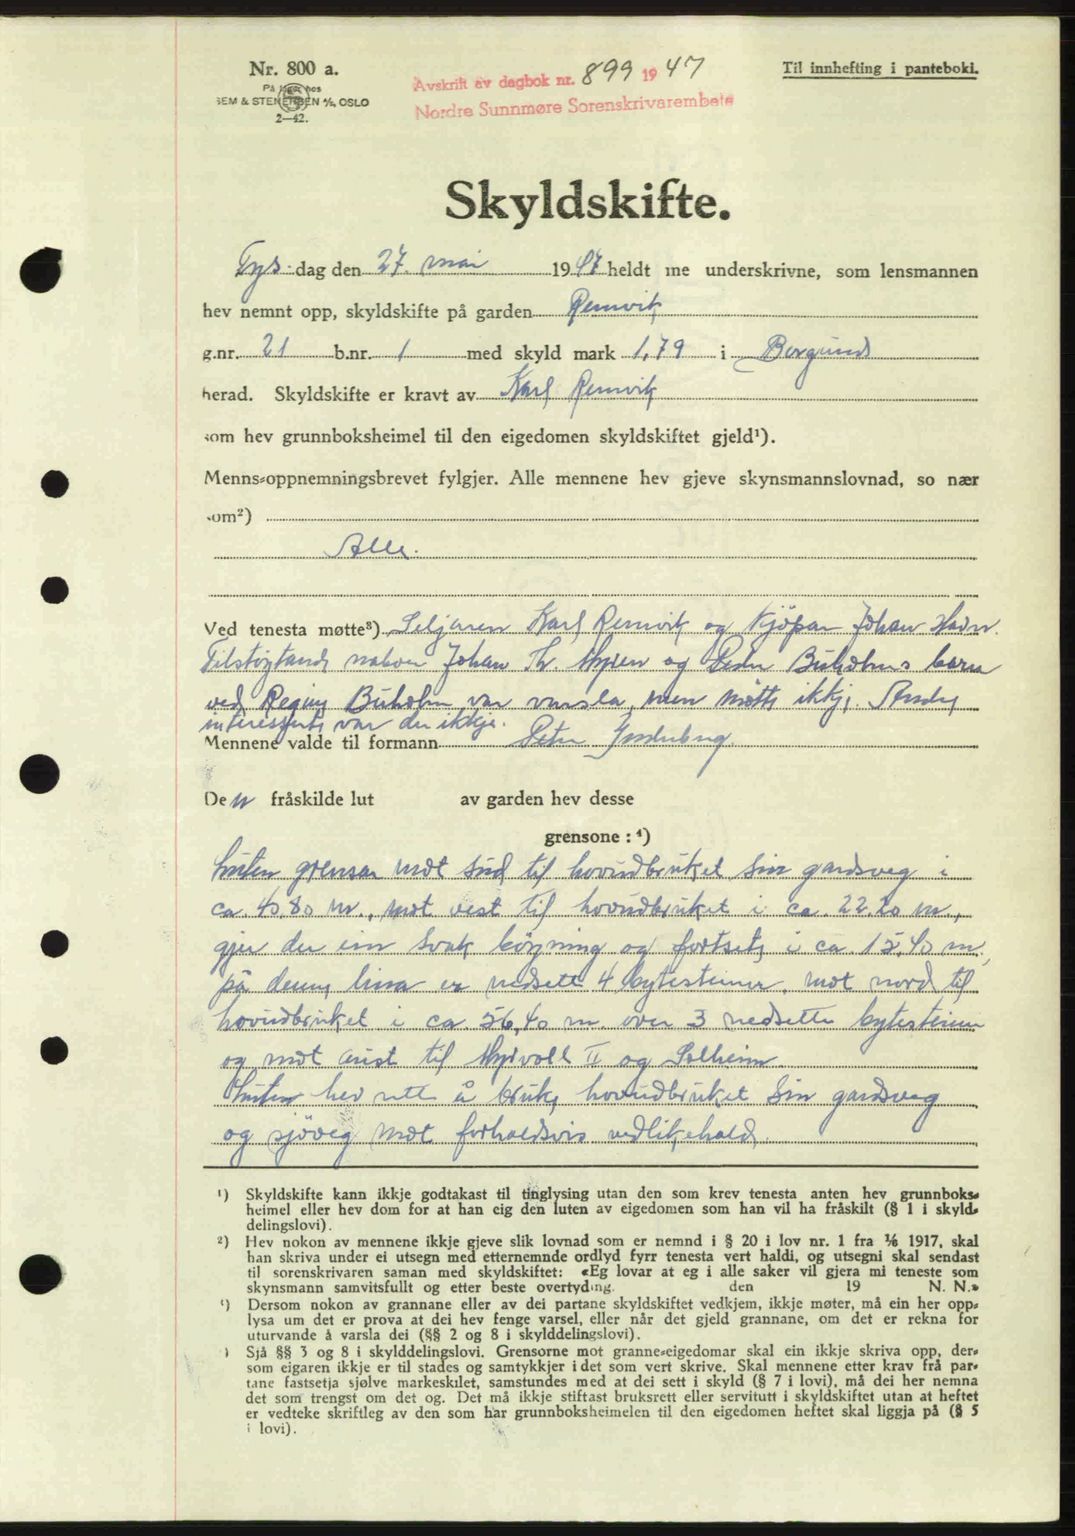 Nr. 800 a.
På lager hos
SEM & STENERSEN A/S, OSLO
2—42.
Avskrift av dagbok nr. 899 1947
Nordre Sunnmøre Sorenskrivarembete
Til innhefting i panteboki.
Skyldskifte.
Tys dag den 27. mai 1947 heldt me underskrivne, som lensmannen
hev nemnt opp, skyldskifte på garden Remvik
g.nr. 21 b.nr. 1 med skyld mark 1,79 i Borgund
herad. Skyldskifte er kravt av Karl Remvik
som hev grunnboksheimel til den eigedomen skyldskiftet gjeld¹).
Menns-oppnemningsbrevet fylgjer. Alle mennene hev gjeve skynsmannslovnad, so nær
som²)
Alle.
Ved tenesta møtte³) Seljaren Karl Remvik og kjöpar Johan Havn.
Tilstøytande naboer Johan Th. Myren og Peder Buholms barn
ved Regine Buholm var varsla, men møtte ikkje. Andre
interesserte var der ikkje.
Mennene valde til formann Peter
Den fråskilde lut av garden hev desse
grensone : ⁴)
Luten grensar mot sud til hovudbruket sin gardsveg i
ca. 40,80 m., mot vest til hovudbruket i ca. 22.20 m.,
gjer der ein svak bøygning og fortset i ca. 15,40 m.,
på denne lina er nedsett 4 bytesteiner. mot nord til
hovudbruket i ca. 56,40 m over 3 nedsette bytesteiner
og mot aust til Myrvoll II og Solheim.
Luten hev rett å bruke hovudbruket sin gardsveg
og sjöveg mot forholdsvis vedlikehald.
¹) Skyldskifte kann ikkje godtakast til tinglysing utan den som krev tenesta anten hev grunnboks-
heimel eller hev dom for at han eig den luten av eigedomen som han vil ha fråskilt (§ 1 i skyld-
delingslovi).
²) Hev nokon av mennene ikkje gjeve slik lovnad som er nemnd i § 20 i lov nr. 1 fra 1/6 1917, skal
han skriva under ei utsegn med etternemnde ordlyd fyrr tenesta vert haldi, og utsegni skal sendast
til sorenskrivaren saman med skyldskiftet: «Eg lovar at eg i alle saker vil gjera mi teneste som
skynsmann samvitsfullt og etter beste overtyding. den 19 N. N.»
³) Dersom nokon av grannane eller av dei partane skyldskiftet vedkjem, ikkje møter, må ein her opp-
lysa um det er prova at dei hev fenge varsel, eller når det gjeld grannane, om det er rekna for
uturvande å varsla dei (§§ 2 og 8 i skylddelingslovi).
⁴) Sjå §§ 3 og 8 i skylddelingslovi. Grensorne mot granne-eigedomar skal ein ikkje skriva opp, der-
som eigaren ikkje er til stades og samtykkjer i det som vert skrive. Skal mennene etter krav frå par-
tane fastsetja sjølve markeskilet, samstundes med at dei sett i skyld (§ 7 i lovi), må dei her nemna
det som trengst om det og. Det må ikkje stiftast bruksrett eller servitutt i skyldskiftet utan at heftet
er vedteke skriftleg av den som har grunnboksheimelen til den eigedomen heftet skal liggja på (§ 5
i lovi).